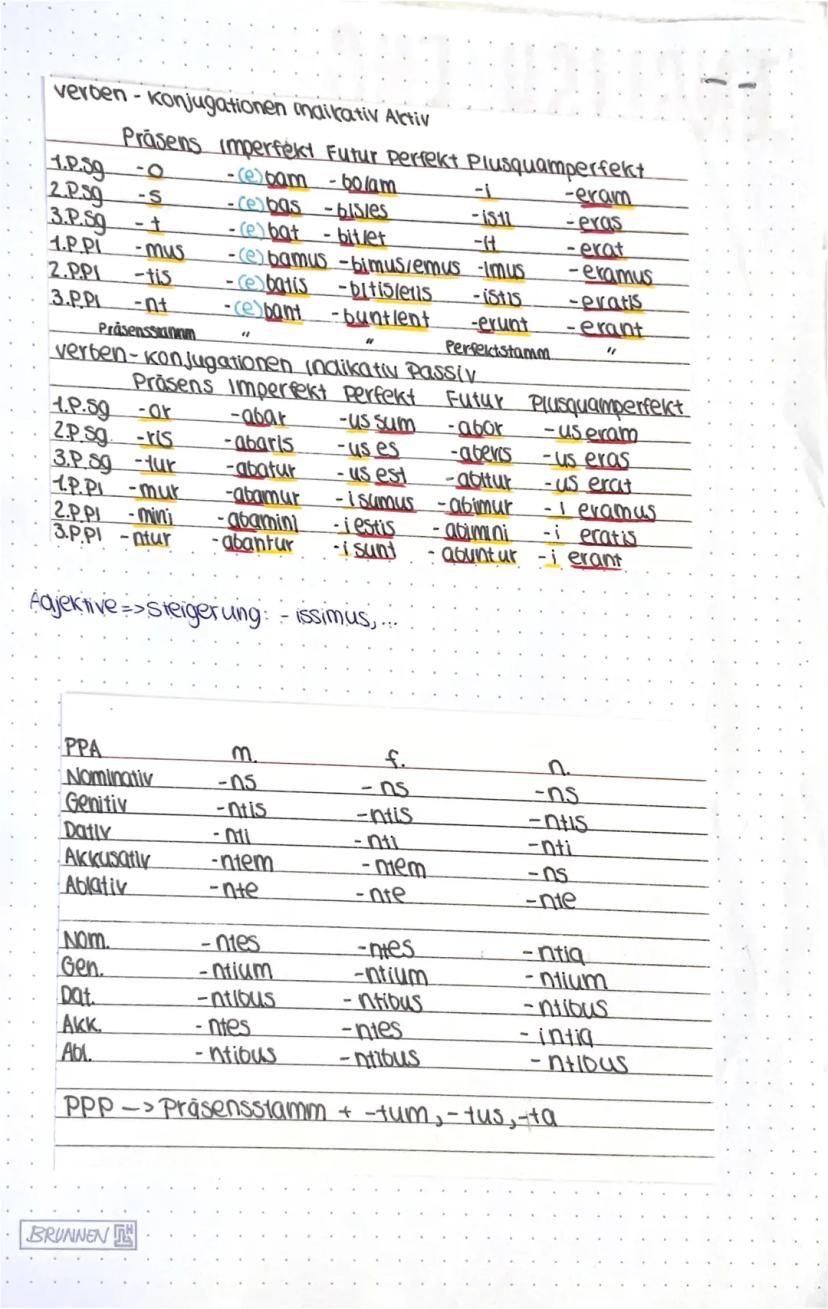 Verben - Konjugationen Indikativ Aktiv
Präsens Imperfekt Futur Perfekt Plusquamperfekt
1.P.Sg -o -(e)bam -bo/am -i -eram
2.P.Sg -s -(e)bas -bis/es -isti -eras
3.P.Sg -t -(e)bat -bit/et -it -erat
1.P.Pl -mus -(e)bamus -bimus/emus -imus -eramus
2.P.Pl -tis -(e)batis -bitis/etis -istis -eratis
3.P.Pl -nt -(e)bant -bunt/ent -erunt -erant
Präsensstamm " " Perfektstamm "
Verben- Konjugationen Indikativ Passiv
Präsens Imperfekt Perfekt Futur Plusquamperfekt
1.P.Sg -or -abar -us sum -abor -us eram
2.P.Sg -ris -abaris -us es -aberis -us eras
3.P.Sg -tur -abatur -us est -abitur -us erat
1.P.Pl -mur -abamur -i sumus -abimur -i eramus
2.P.Pl -mini -abamini -i estis -abimini -i eratis
3.P.Pl -ntur -abantur -i sunt -abuntur -i erant
Adjektive => Steigerung: -issimus,...
PPA m. f. n.
Nominativ -ns -ns -ns
Genitiv -ntis -ntis -ntis
Dativ -nti -nti -nti
Akkusativ -ntem -ntem -ns
Ablativ -nte -nte -nte
Nom. -ntes -ntes -ntia
Gen. -ntium -ntium -ntium
Dat. -ntibus -ntibus -ntibus
Akk. -ntes -ntes -intia
Abl. -ntibus -ntibus -ntibus
PPP -> Präsensstamm + -tum, -tus, -ta
BRUNNEN